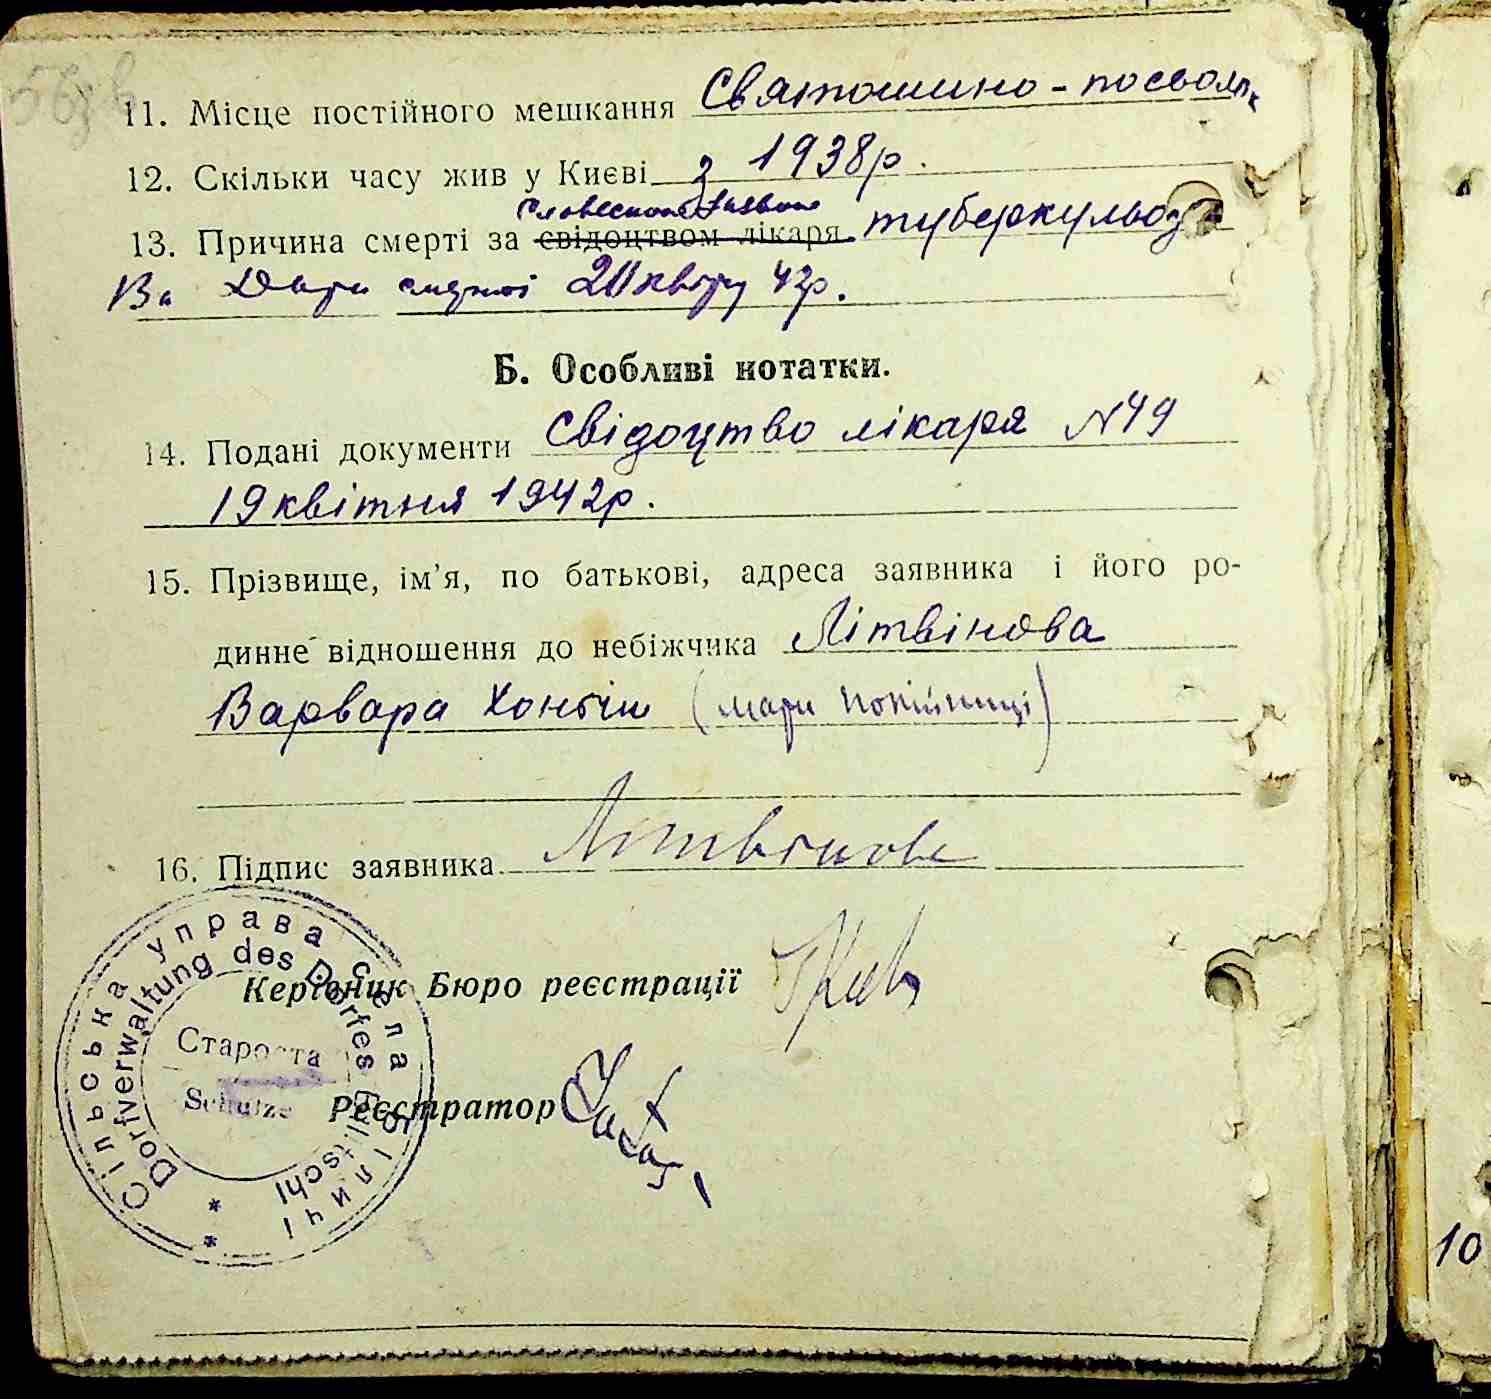 11. Місце постійного мешкання Святошино - посьолк
12. Скільки часу жив у Києві з 1938р.
13. Причина смерті за свідоцтвом лікаря туберкульоз
Дата смерті 20 квіт 42р.
Б. Особливі нотатки.
14. Подані документи Свідоцтво лікаря N49
19 квітня 1942р.
15. Прізвище, ім’я, по батькові, адреса заявника і його ро-
динне відношення до небіжчика Літвінова
Варвара (мати покійниці)
16. Підпис заявника Літвінова
Керівник Бюро реєстрації
Реєстратор
Сільська управа села Біличі
Dorfverwaltung des Dorfes Bilitschi
Староста
Schulze
10